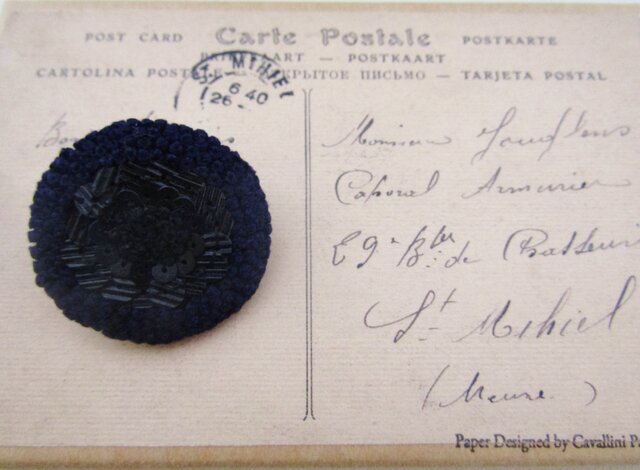 POST CARD Carte Postale POSTKARTE
POSTKAART
CARTOLINA POSTALE ОТКРЫТОЕ ПИСЬМО — TARJETA POSTAL
ST MIHIEL
6 40
26
Monsieur
Caporal Armurier
29e Bon de Chasseurs
St Mihiel
(Meuse)
Paper Designed by Cavallini